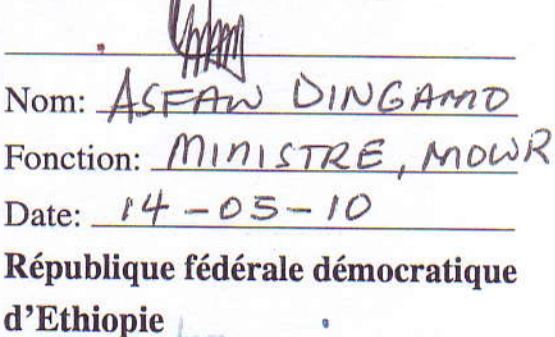 Nom: ASFAW DINGAMO
Fonction: MINISTRE, MOWR
Date: 14-05-10
République fédérale démocratique
d'Ethiopie